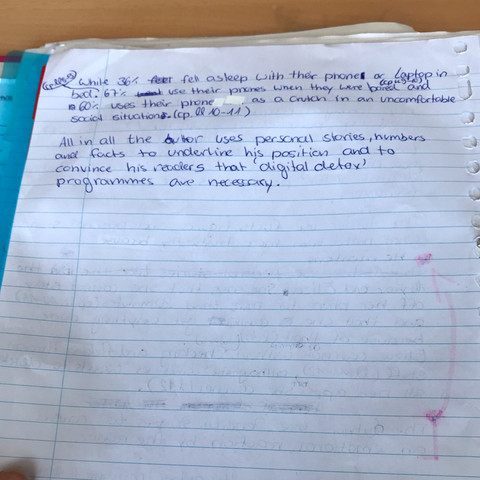 While 36% fell asleep with their phone or Laptop in
bed. 67% use their phones when they were bored and
60% uses their phone as a crutch in an uncomfortable
social situation. (cp. ll 10-11)
All in all the autor uses personal stories, numbers
and facts to underline his position and to
convince his readers that 'digital detox'
programmes are necessary.